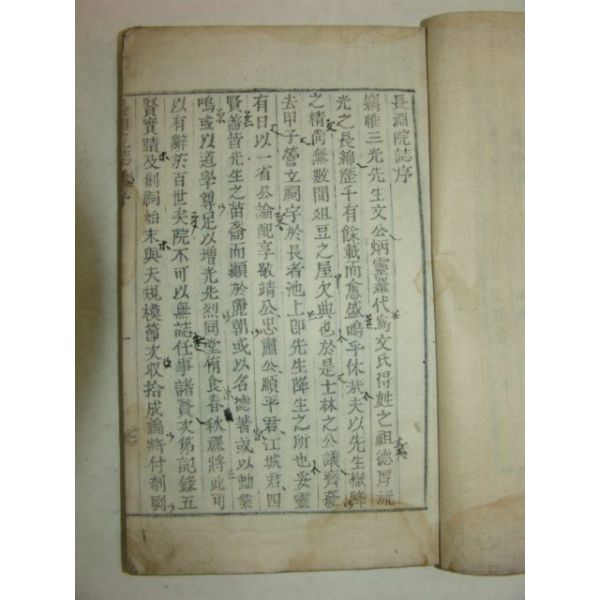 長淵院誌序
竊惟三光先生文公炳靈羅代爲文氏得姓之祖德厚流
光之長綿歷千有餘載而愈盛嗚乎休哉夫以先生嶽降
之精尚無數間俎豆之屋欠典也於是士林之公議齊奮
去甲子營立祠宇於長者池上卽先生降生之所也妥靈
有日以一省公論配享敬靖公忠肅公順平君江城君四
賢蓋皆先生之苗裔而顯於麗朝或以名德著或以勳業
鳴或以道學尊足以增光先烈同堂侑食春秋禋將此可
以有辭於百世矣院不可以無誌任事諸賢次第記錄五
賢實蹟及創祠始末與夫規模節次收拾成編將付剞劂